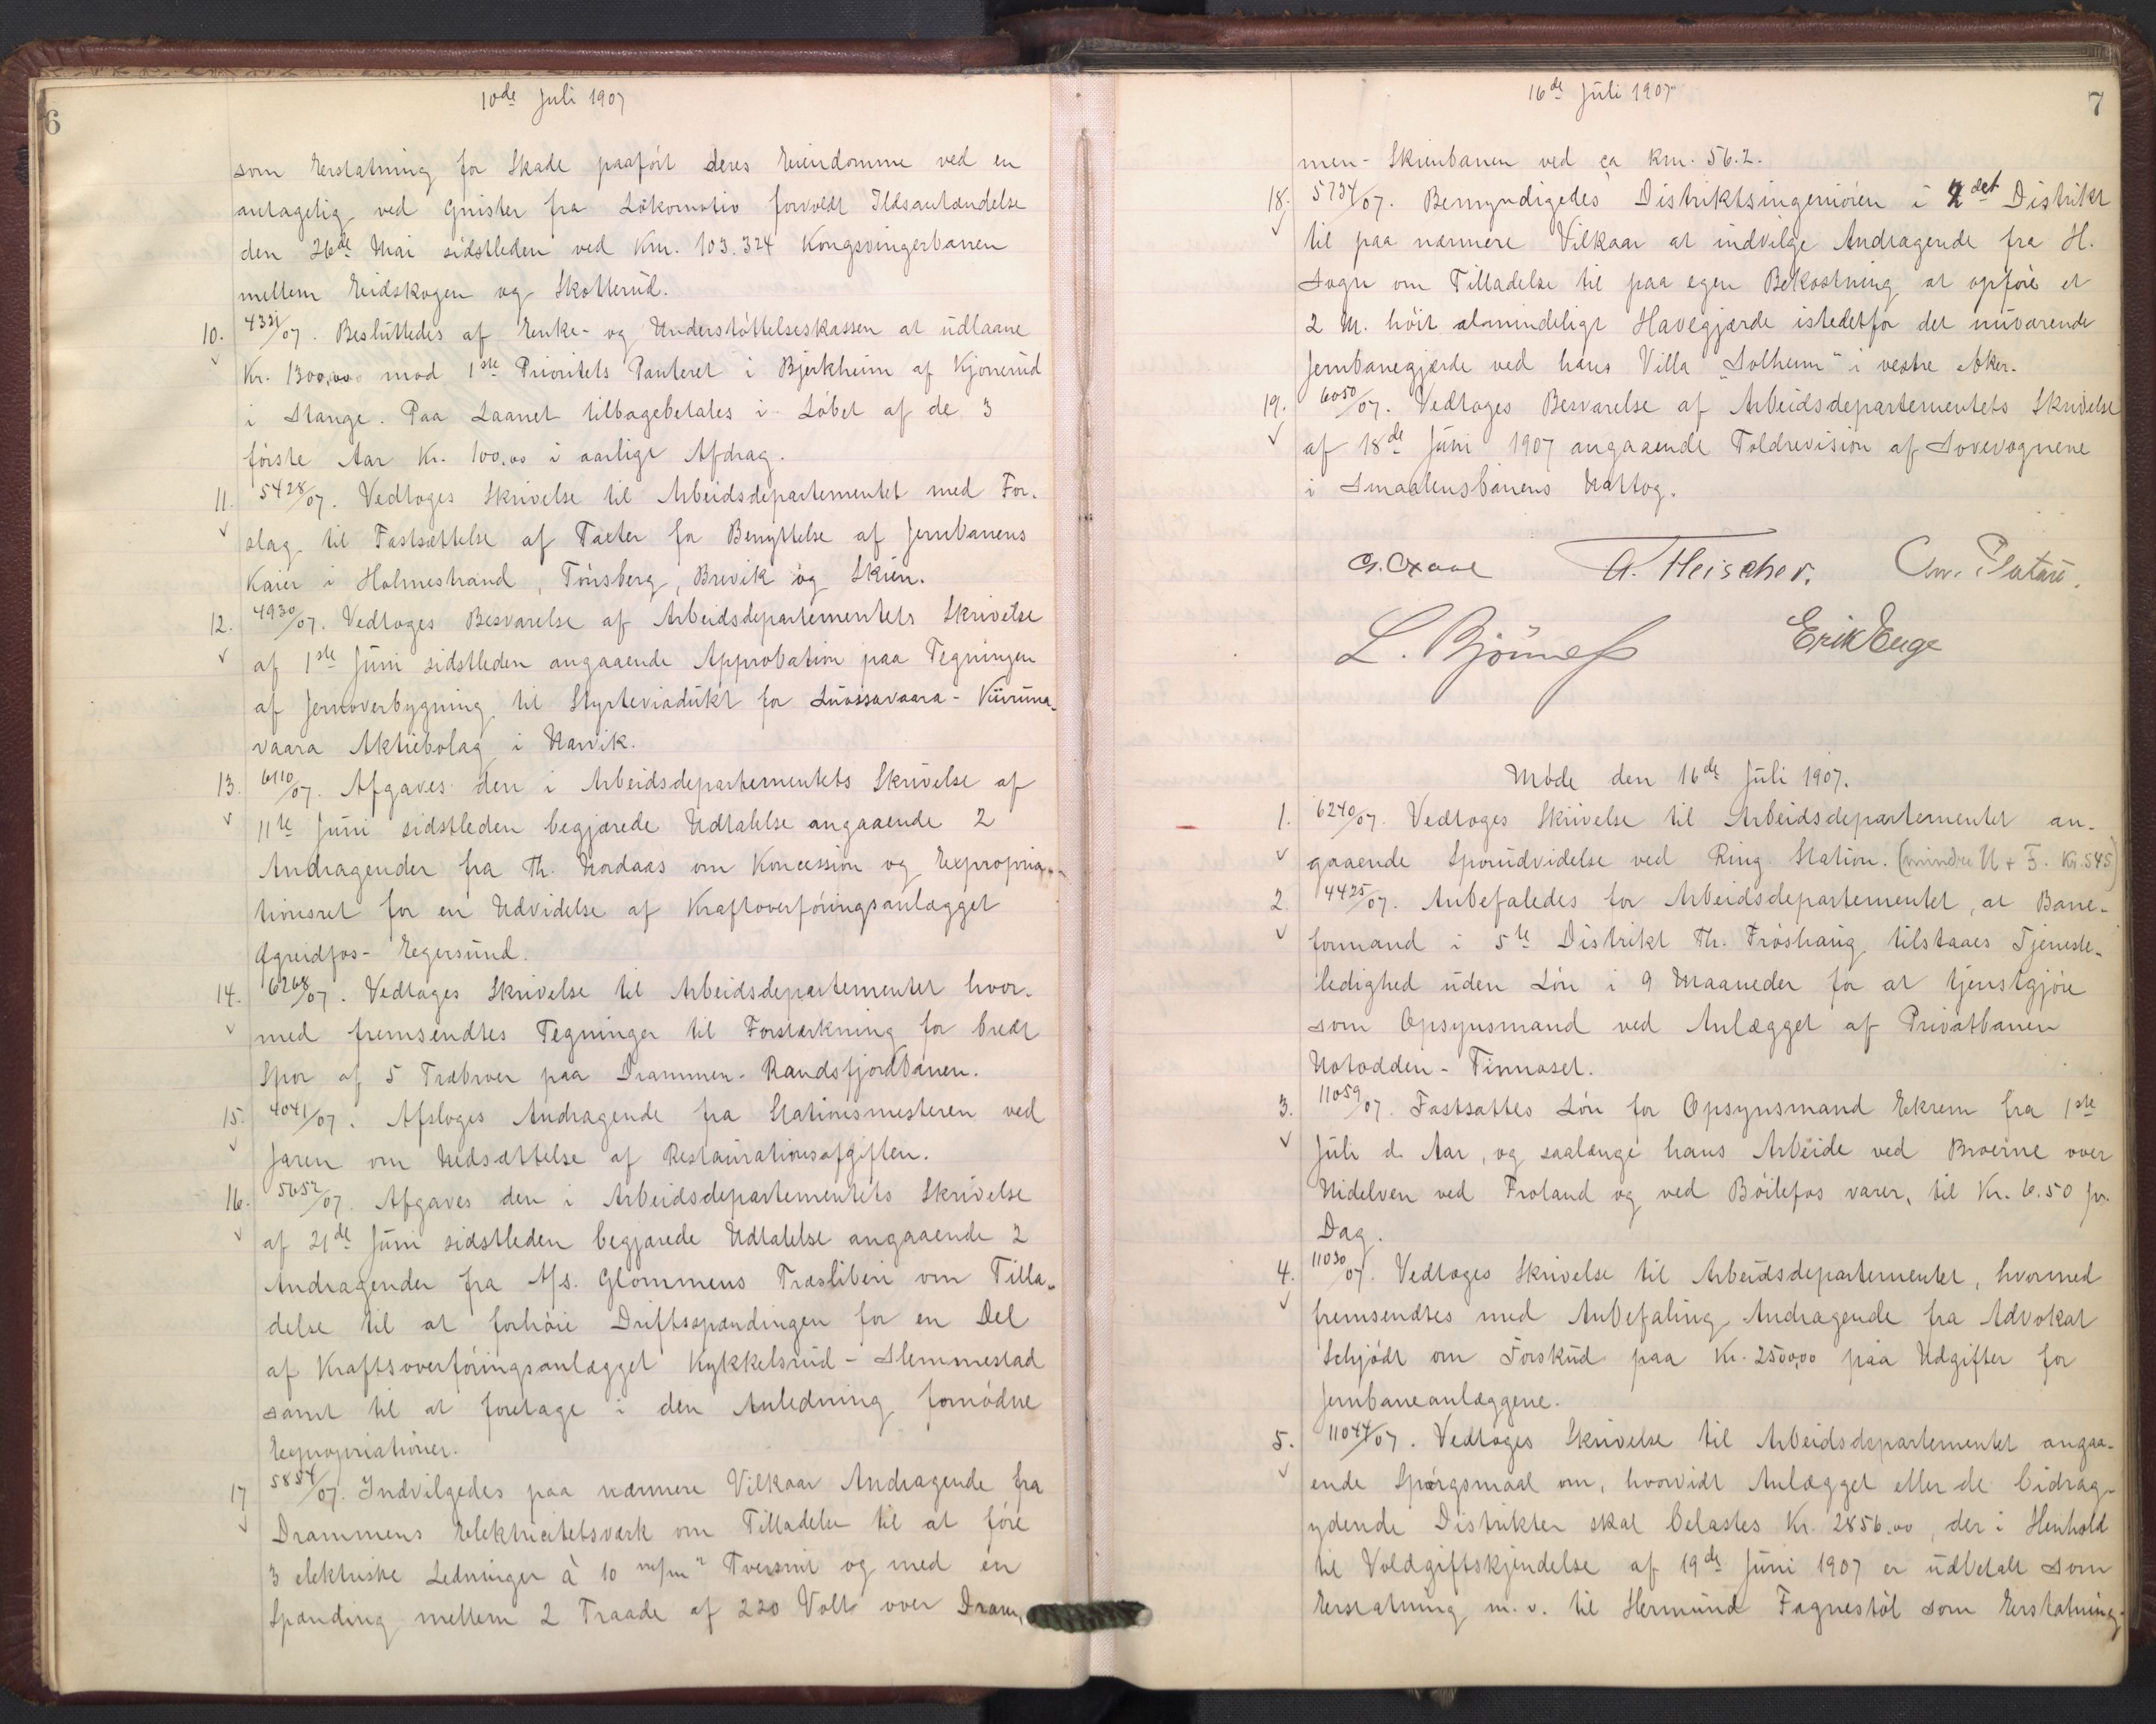 6
10de Juli 1907
som Erstatning for Skade paaført deres Eiendomme ved en
antagelig ved Gnister fra Lokomotiv forvoldt Ildsantændelse
den 26de Mai sidstleden ved Km. 103.324 Kongsvingerbanen
mellem Eidskogen og Skotterud.
10. 4321/07. Besluttedes af Enke- og Understøttelseskassen at udlaane
Kr. 1300,00 mod 1ste Prioritets Panteret i Bjerkheim af Kjonerud
i Stange. Paa Laanet tilbagebetales i Løbet af de 3
første Aar Kr. 100,00 i aarligt Afdrag.
11. 5428/07. Vedtoges Skrivelse til Arbeidsdepartementet med For-
slag til Fastsættelse af Taxter for Benyttelse af Jernbanens
Kaier i Holmestrand, Tønsberg, Brevik og Skien.
12. 4930/07. Vedtoges Besvarelse af Arbeidsdepartementets Skrivelse
af 1ste Juni sidstleden angaaende Approbation paa Tegningen
af Jernoverbygning til Styrteviadukt for Luossavaara-Kiiruna-
vaara Aktiebolag i Narvik.
13. 6110/07. Afgaves den i Arbeidsdepartementets Skrivelse af
11te Juni sidstleden begjærede Udtalelse angaaende 2
Andragender fra Th. Nordaas om Koncession og Expropria-
tionsret for en Udvidelse af Kraftoverføringsanlægget
Øgreidfos-Egersund.
14. 6268/07. Vedtoges Skrivelse til Arbeidsdepartementet hvor-
med fremsendtes Tegninger til Forstærkning for bredt
Spor af 5 Træbroer paa Drammen-Randsfjordbanen.
15. 4041/07. Afsloges Andragende fra Stationsmesteren ved
Jaren om Nedsættelse af Restaurationsafgiften.
16. 5652/07. Afgaves den i Arbeidsdepartementets Skrivelse
af 21de Juni sidstleden begjærede Udtalelse angaaende 2
Andragender fra A/s. Glommens Træsliberi om Tilla-
delse til at forhøie Driftsspændingen for en Del
af Kraftsoverføringsanlægget Kykkelsrud-Slemmestad
samt til at foretage i den Anledning fornødne
Expropriationer.
17 5854/07. Indvilgedes paa nærmere Vilkaar Andragende fra
Drammens Elektricitetsværk om Tilladelse til at føre
3 elektriske Ledninger à 10 m/m² Tversnit og med en
Spænding mellem 2 Traade af 220 Volt over Dram-
16de Juli 1907
7
men-Skienbanen ved ca km. 56.2.
18. 5734/07. Bemyndigedes Distriktsingeniøren i 2det Distrikt
til paa nærmere Vilkaar at indvilge Andragende fra H.
Sogn om Tilladelse til paa egen Bekostning at opføre et
2 M. høit almindeligt Havegjærde istedetfor det nuværende
Jernbanegjærde ved hans Villa "Solheim" i vestre Aker.
19. 6050/07. Vedtoges Besvarelse af Arbeidsdepartementets Skrivelse
af 18de Juni 1907 angaaende Toldrevision af Sovevognene
i Smaalensbanens Nattog.
A. Fleischer. Chr. Platou.
L. Bjørnness Erik Enge
Møde den 16de Juli 1907.
1. 6240/07. Vedtoges Skrivelse til Arbeidsdepartementet an-
gaaende Sporudvidelse ved Ring Station. (mindre U + F. Kr. 545)
2. 4425/07. Anbefaledes for Arbeidsdepartementet, at Bane-
formand i 5te Distrikt Th. Frøshaug tilstaaes Tjeneste-
ledighed uden Løn i 9 Maaneder for at tjenstgjøre
som Opsynsmand ved Anlægget af Privatbanen
Notodden-Tinnoset.
3. 11059/07. Fastsattes Løn for Opsynsmand Ekrem fra 1ste
Juli d. Aar, og saalænge hans Arbeide ved Broerne over
Nidelven ved Froland og ved Bøilefos varer, til Kr. 6.50 pr.
Dag.
4. 11030/07. Vedtoges Skrivelse til Arbeidsdepartementet, hvormed
fremsendtes med Anbefaling Andragende fra Advokat
Schjødt om Forskud paa Kr. 2500,00 paa Udgifter for
Jernbaneanlæggene.
5. 11044/07. Vedtoges Skrivelse til Arbeidsdepartementet angaa-
ende Spørgsmaal om, hvorvidt Anlægget eller de bidrag-
ydende Distrikter skal belastes Kr. 2856.00, der i Henhold
til Voldgiftskjendelse af 19de Juni 1907 er udbetalt som
Erstatning m.v. til Hermund Fagnestøl som Erstatning-